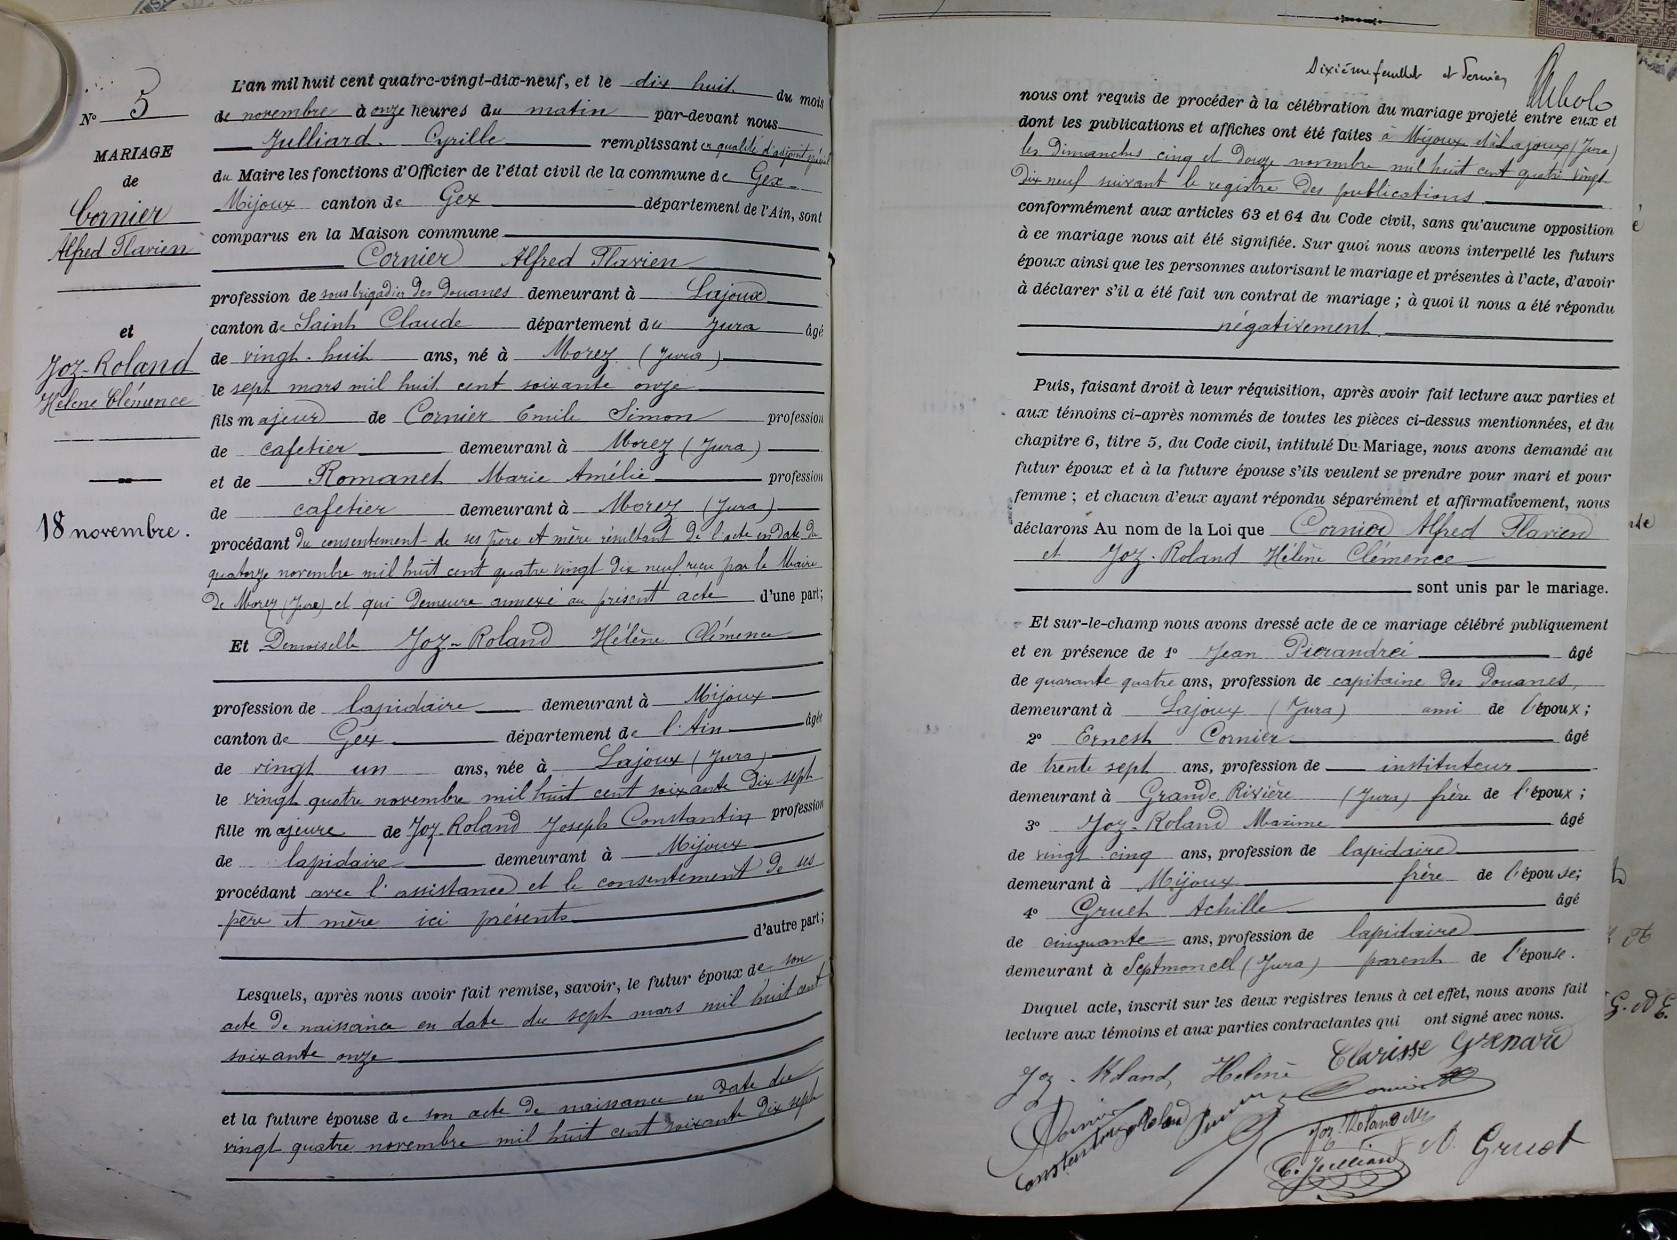 N° 5
MARIAGE
de
Cornier
Alfred Flavien
et
Joz-Roland
Hélène Clémence
18 novembre.
L'an mil huit cent quatre-vingt-dix-neuf, et le dix huit du mois
de novembre à onze heures du matin par-devant nous
Julliard Cyrille remplissant en qualité d'adjoint spécial
du Maire les fonctions d'Officier de l'état civil de la commune de Gex-
Mijoux canton de Gex département de l'Ain, sont
comparus en la Maison commune
Cornier Alfred Flavien
profession de sous brigadier des Douanes demeurant à Lajoux
canton de Saint Claude département du Jura âgé
de vingt-huit ans, né à Morez (Jura)
le sept mars mil huit cent soixante onze
fils majeur de Cornier Emile Simon profession
de cafetier demeurant à Morez (Jura)
et de Romanet Marie Amélie profession
de cafetier demeurant à Morez (Jura)
procédant du consentement de ses père et mère résultant de l'acte en date du
quatorze novembre mil huit cent quatre vingt dix neuf reçu par le Maire
de Morez (Jura) et qui demeure annexé au présent acte d'une part;
Et Demoiselle Joz-Roland Hélène Clémence
profession de lapidaire demeurant à Mijoux
canton de Gex département de l'Ain âgée
de vingt un ans, née à Lajoux (Jura)
le vingt quatre novembre mil huit cent soixante dix sept
fille majeure de Joz-Roland Joseph Constantin profession
de lapidaire demeurant à Mijoux
procédant avec l'assistance et le consentement de ses
père et mère ici présents
d'autre part;
Lesquels, après nous avoir fait remise, savoir, le futur époux de son
acte de naissance en date du sept mars mil huit cent
soixante onze
et la future épouse de son acte de naissance en date du
vingt quatre novembre mil huit cent soixante dix sept
Dixième feuillet et dernier
nous ont requis de procéder à la célébration du mariage projeté entre eux et
dont les publications et affiches ont été faites à Mijoux et à Lajoux (Jura)
les Dimanches cinq et douze novembre mil huit cent quatre vingt
Dix neuf suivant le registre des publications
conformément aux articles 63 et 64 du Code civil, sans qu'aucune opposition
à ce mariage nous ait été signifiée. Sur quoi nous avons interpellé les futurs
époux ainsi que les personnes autorisant le mariage et présentes à l'acte, d'avoir
à déclarer s'il a été fait un contrat de mariage ; à quoi il nous a été répondu
négativement
Puis, faisant droit à leur réquisition, après avoir fait lecture aux parties et
aux témoins ci-après nommés de toutes les pièces ci-dessus mentionnées, et du
chapitre 6, titre 5, du Code civil, intitulé Du Mariage, nous avons demandé au
futur époux et à la future épouse s'ils veulent se prendre pour mari et pour
femme ; et chacun d'eux ayant répondu séparément et affirmativement, nous
déclarons Au nom de la Loi que Cornier Alfred Flavien
et Joz-Roland Hélène Clémence
sont unis par le mariage.
Et sur-le-champ nous avons dressé acte de ce mariage célébré publiquement
et en présence de 1° Jean Pierandrei âgé
de quarante quatre ans, profession de capitaine des Douanes,
demeurant à Lajoux (Jura) ami de l'époux;
2° Ernest Cornier âgé
de trente sept ans, profession de instituteur
demeurant à Grande Rivière (Jura) frère de l'époux;
3° Joz-Roland Maxime âgé
de vingt cinq ans, profession de lapidaire
demeurant à Mijoux frère de l'épouse;
4° Gruet Achille âgé
de cinquante ans, profession de lapidaire
demeurant à Septmoncel (Jura) parent de l'épouse.
Duquel acte, inscrit sur les deux registres tenus à cet effet, nous avons fait
lecture aux témoins et aux parties contractantes qui ont signé avec nous.
Joz-Roland Helène Clarisse Grenard
Constantin Joz Roland
Joz-Roland M
C. Julliard A. Gruet